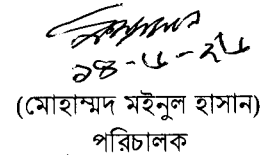 ১৪-৬-২৬
(মোহাম্মদ মইনুল হাসান)
পরিচালক